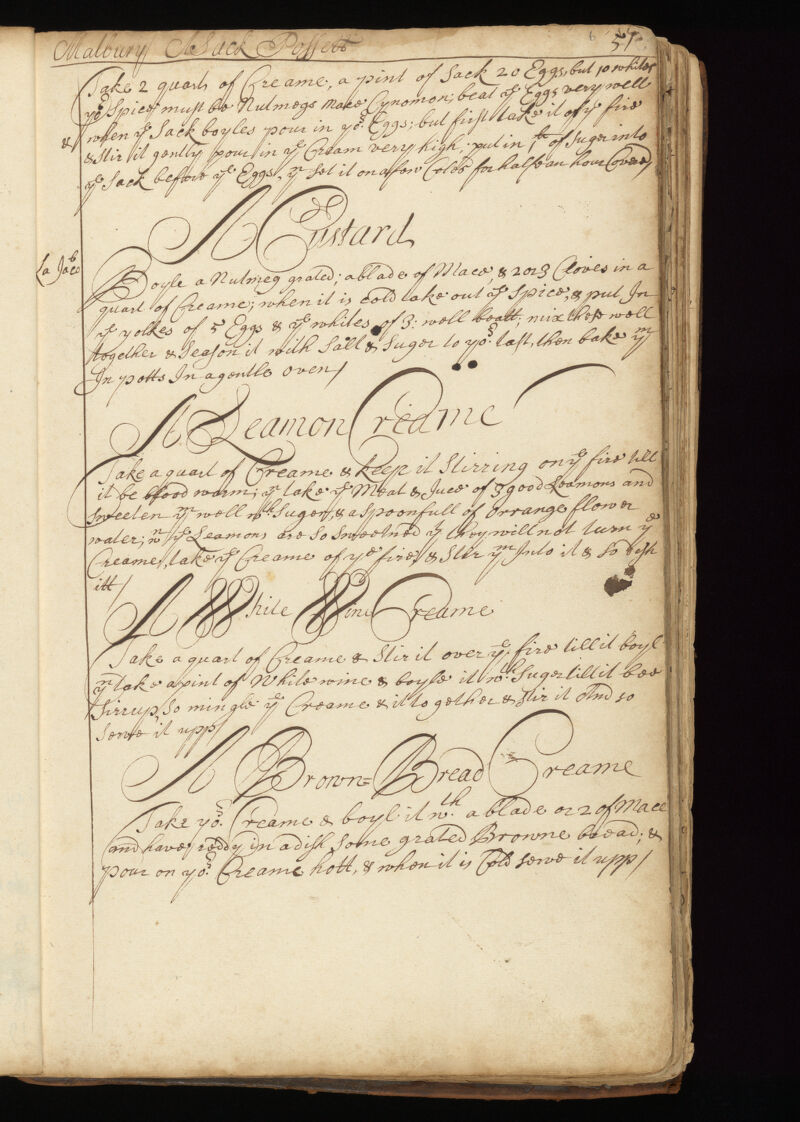 Malbury A Sack Possett 57
Take 2 quarts of Creame, a pint of Sack 20 Eggs but 10 whites
ye Spice must be Nutmegs mace Cynomon; beat ye Eggs very well
when ye Sack boyles pour in yor Eggs; but first take it of ye fire
& Stir it gently pour in ye Cream very high; put in 1lb of Suger into
ye Sack before ye Eggs, yn Set it on a few Coles for halfe an hour Coverd
A Custard
La Jacob
Boyle a Nutmeg grated; a blade of Mace & 2 or 3 Cloves in a
quart of Creame; when it is Cold take out ye Spice, & put In
ye yolkes of 5 Eggs & ye whites of 3: well beatt; mix these well
together & Season it with Salt & Suger to yor tast, then bake ym
In potts In a gentle oven/
A Leamon Creame
Take a quart of Creame & keep it Stirring on ye fire till
it be blood warm; yn take ye Meat & Juce of 3 good Leamons and
Sweeten ym well wth Suger, & a Spoonfull of orrange flower
water; wn ye Leamons are So Sweetned yt they will not turn ye
Creame, take ye Creame of ye fire, & Stir ym Into it & so dish
itt/
A White Wine Creame
Take a quart of Creame & Stir it over ye fire till it boyl
yn take a pint of White wine & boyle it wth Suger till it bee
Sirrup, So mingle ye Creame & it together & Stir it And so
serve it upp/
A Brown=Bread Creame
Take yor Creame & boyl it wth a blade or 2 of Mace
and have reddy in a dish Some grated Browne bread; &
pour on yor Creame hott, & when it is Cold serve it upp/